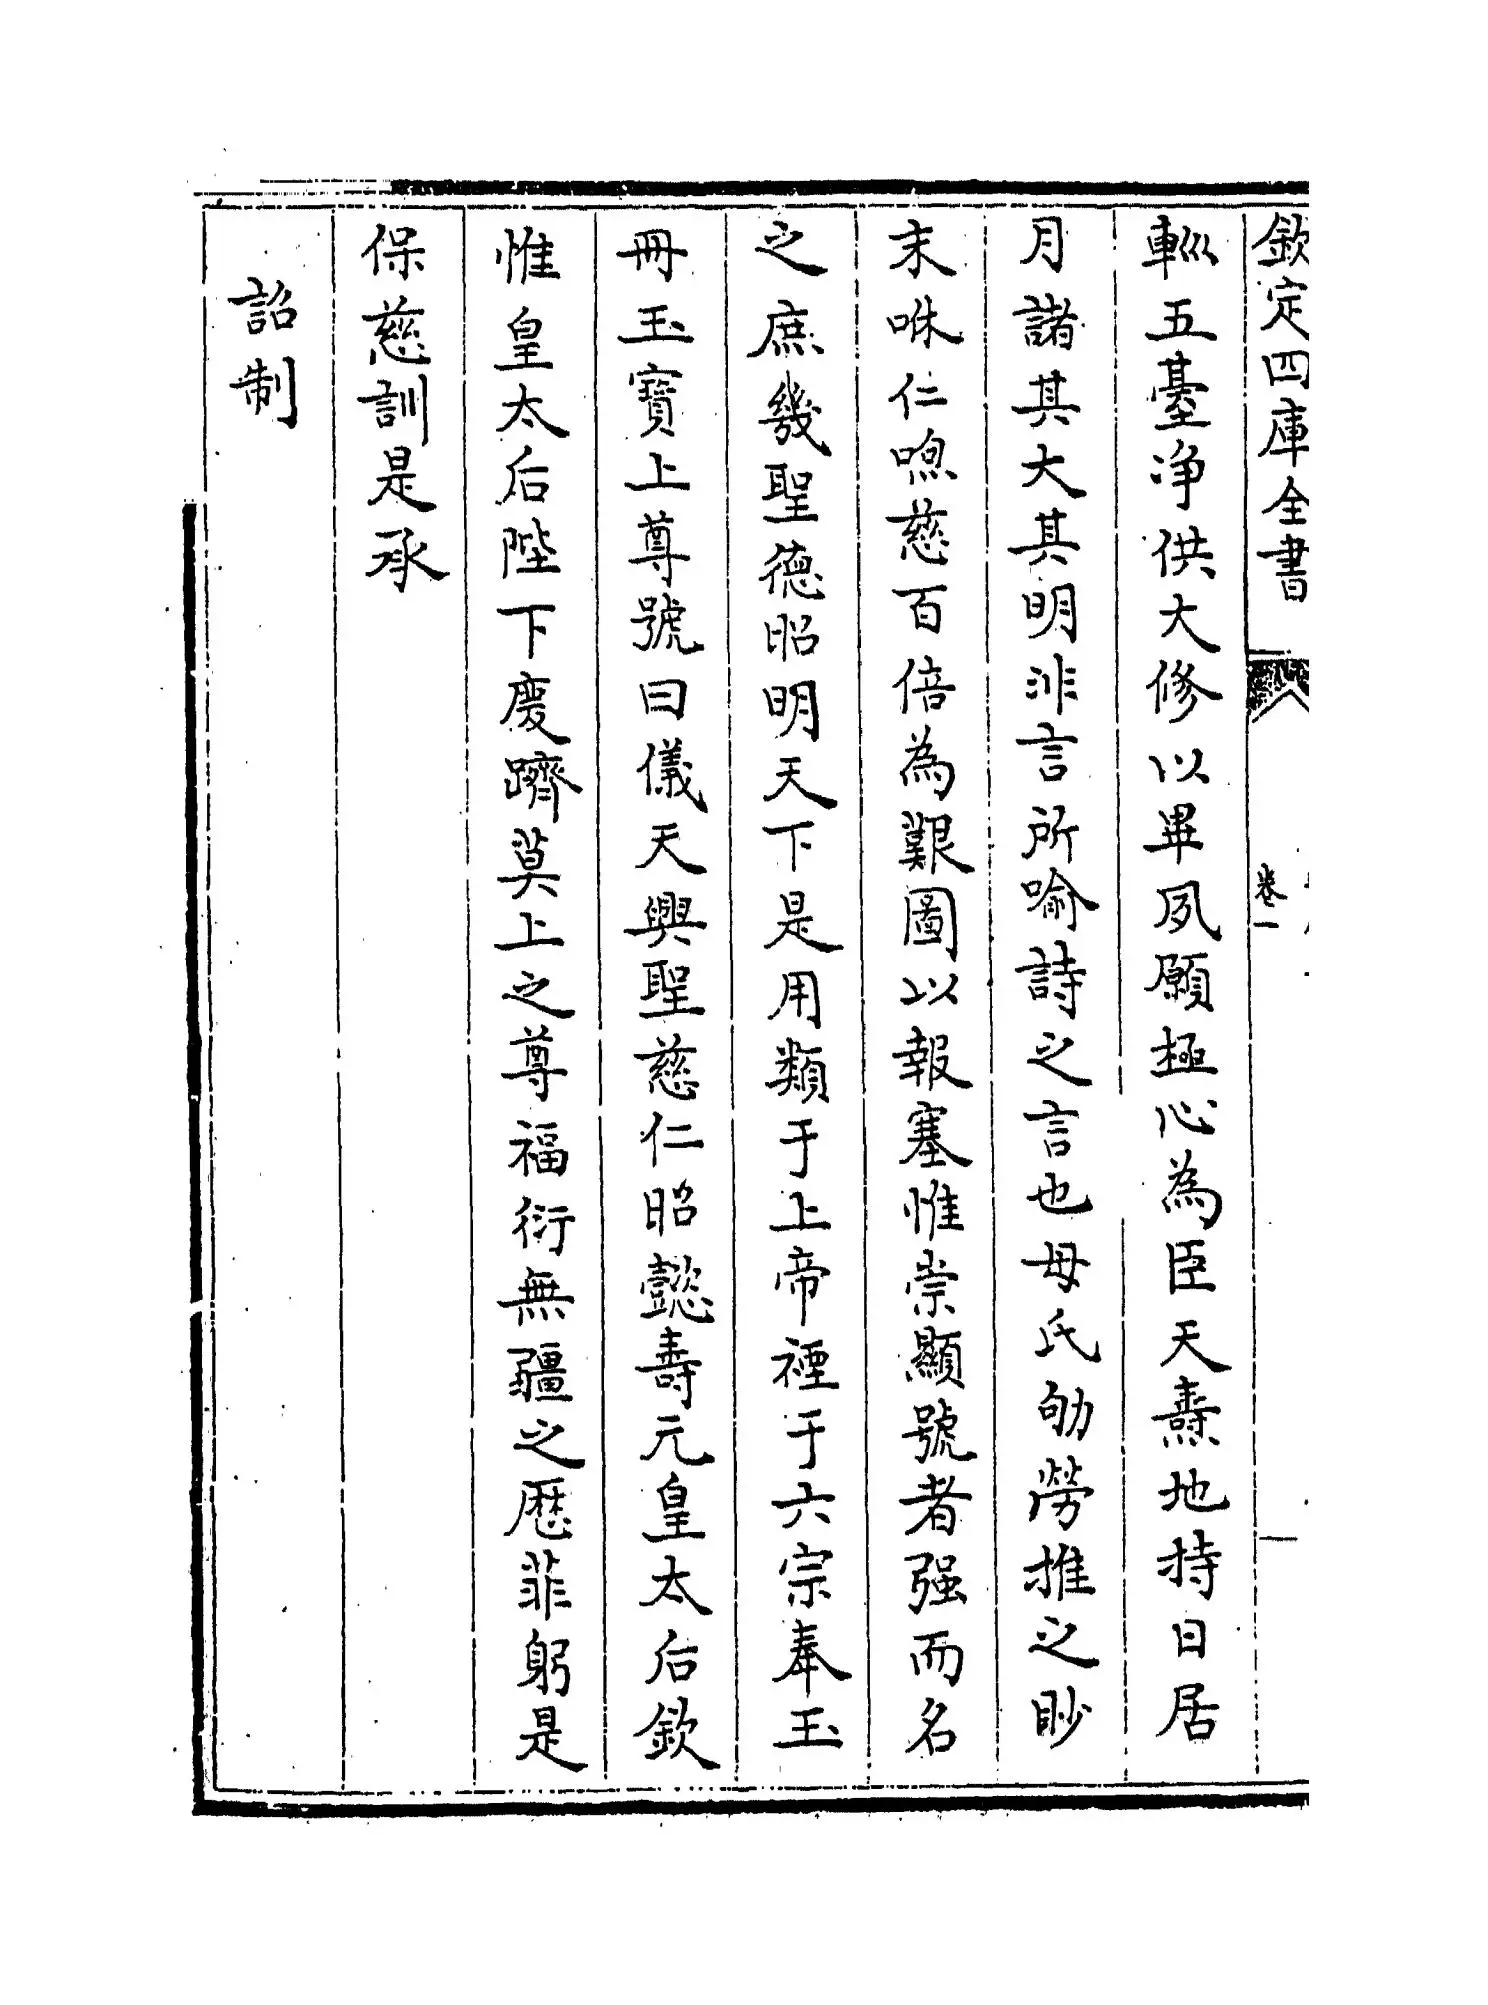 欽定四庫全書
卷一
輧五臺淨供大修以畢夙願極心為臣天燾地持日居
月諸其大其明非言所喻詩之言也母氏劬勞推之眇
末咻仁喣慈百倍為艱圖以報塞惟崇顯號者强而名
之庶幾聖德昭明天下是用類于上帝禋于六宗奉玉
冊玉寶上尊號曰儀天興聖慈仁昭懿壽元皇太后欽
惟皇太后陛下慶躋莫上之尊福衍無疆之厯菲躬是
保慈訓是承
詔制